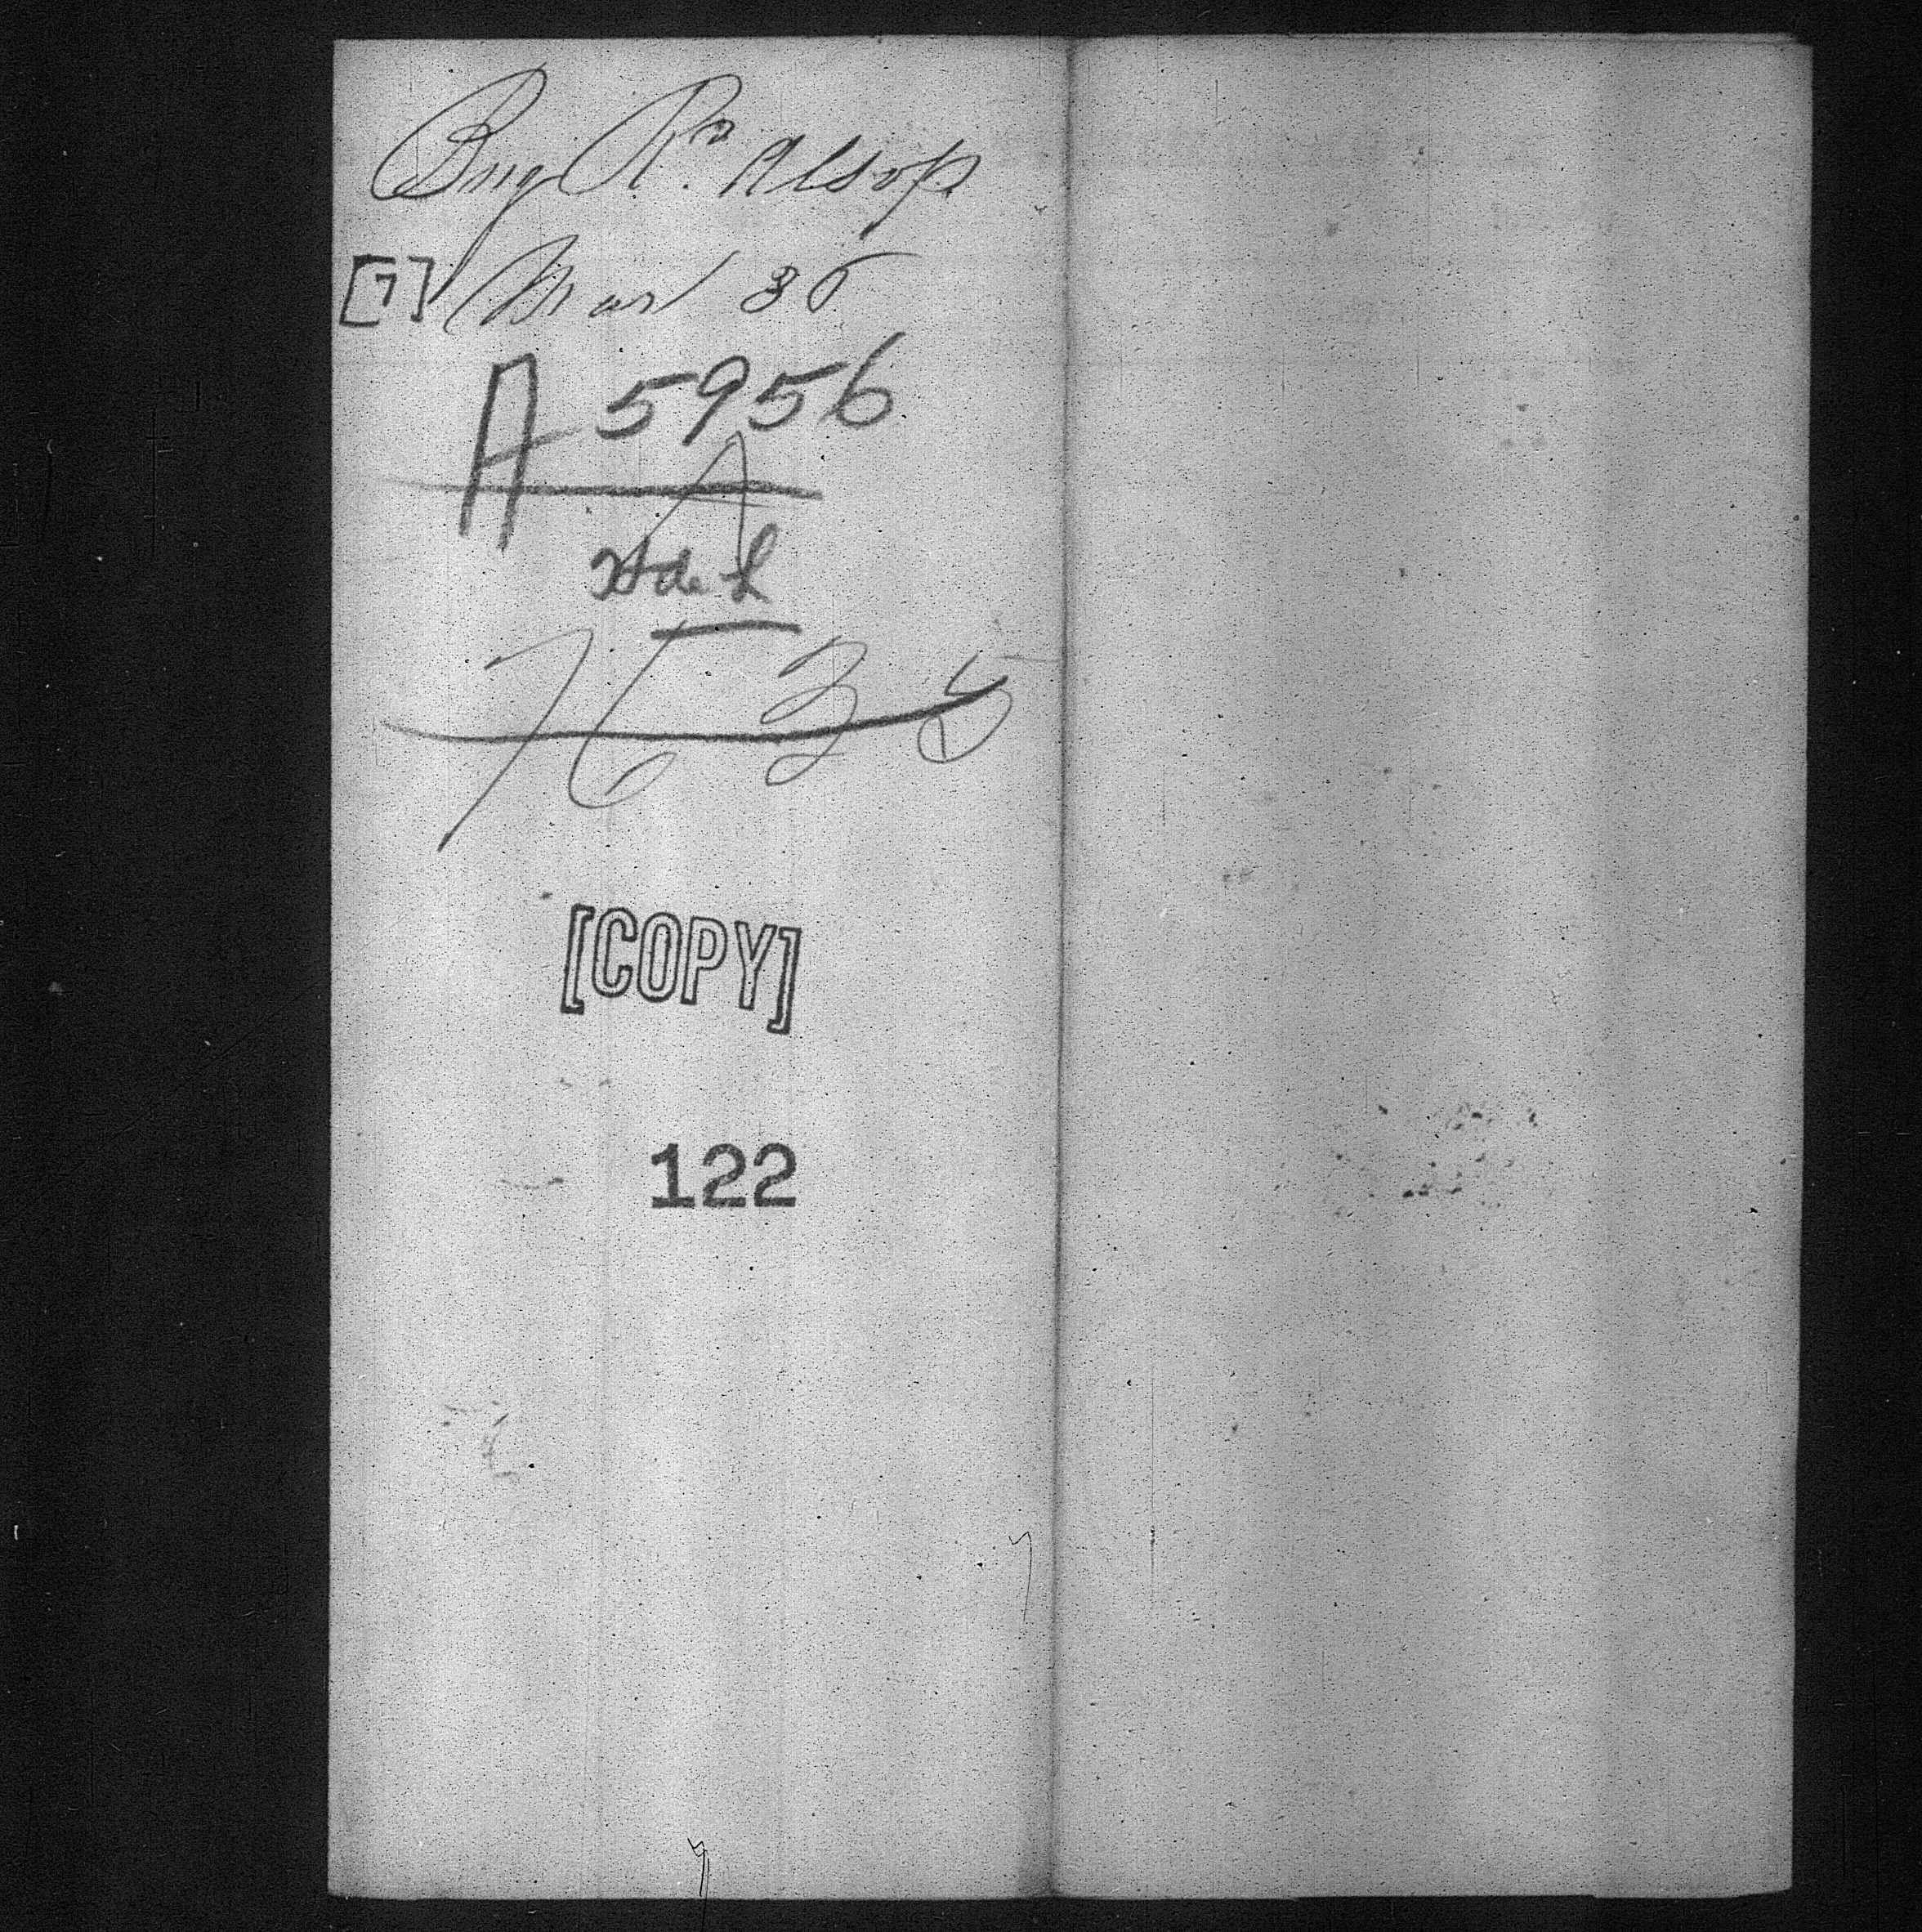 Benj Rn. Alsop
[7] Mar 30
A 5956
A
7635
[COPY]
122